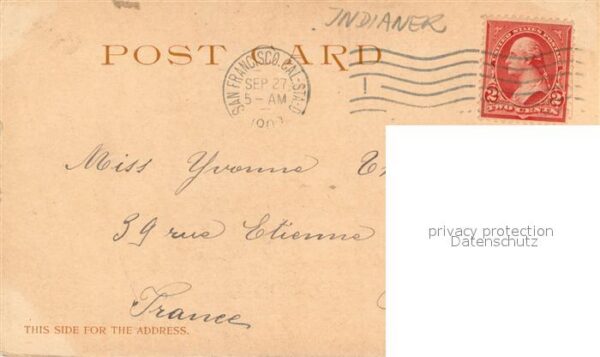 INDIANER
POST CARD
SAN FRANCISCO, CAL.
SEP 27
5-AM
1
UNITED STATES OF AMERICA
2 2
TWO CENTS
Miss Yvonne
39 rue Etienne
France
privacy protection
Datenschutz
THIS SIDE FOR THE ADDRESS.